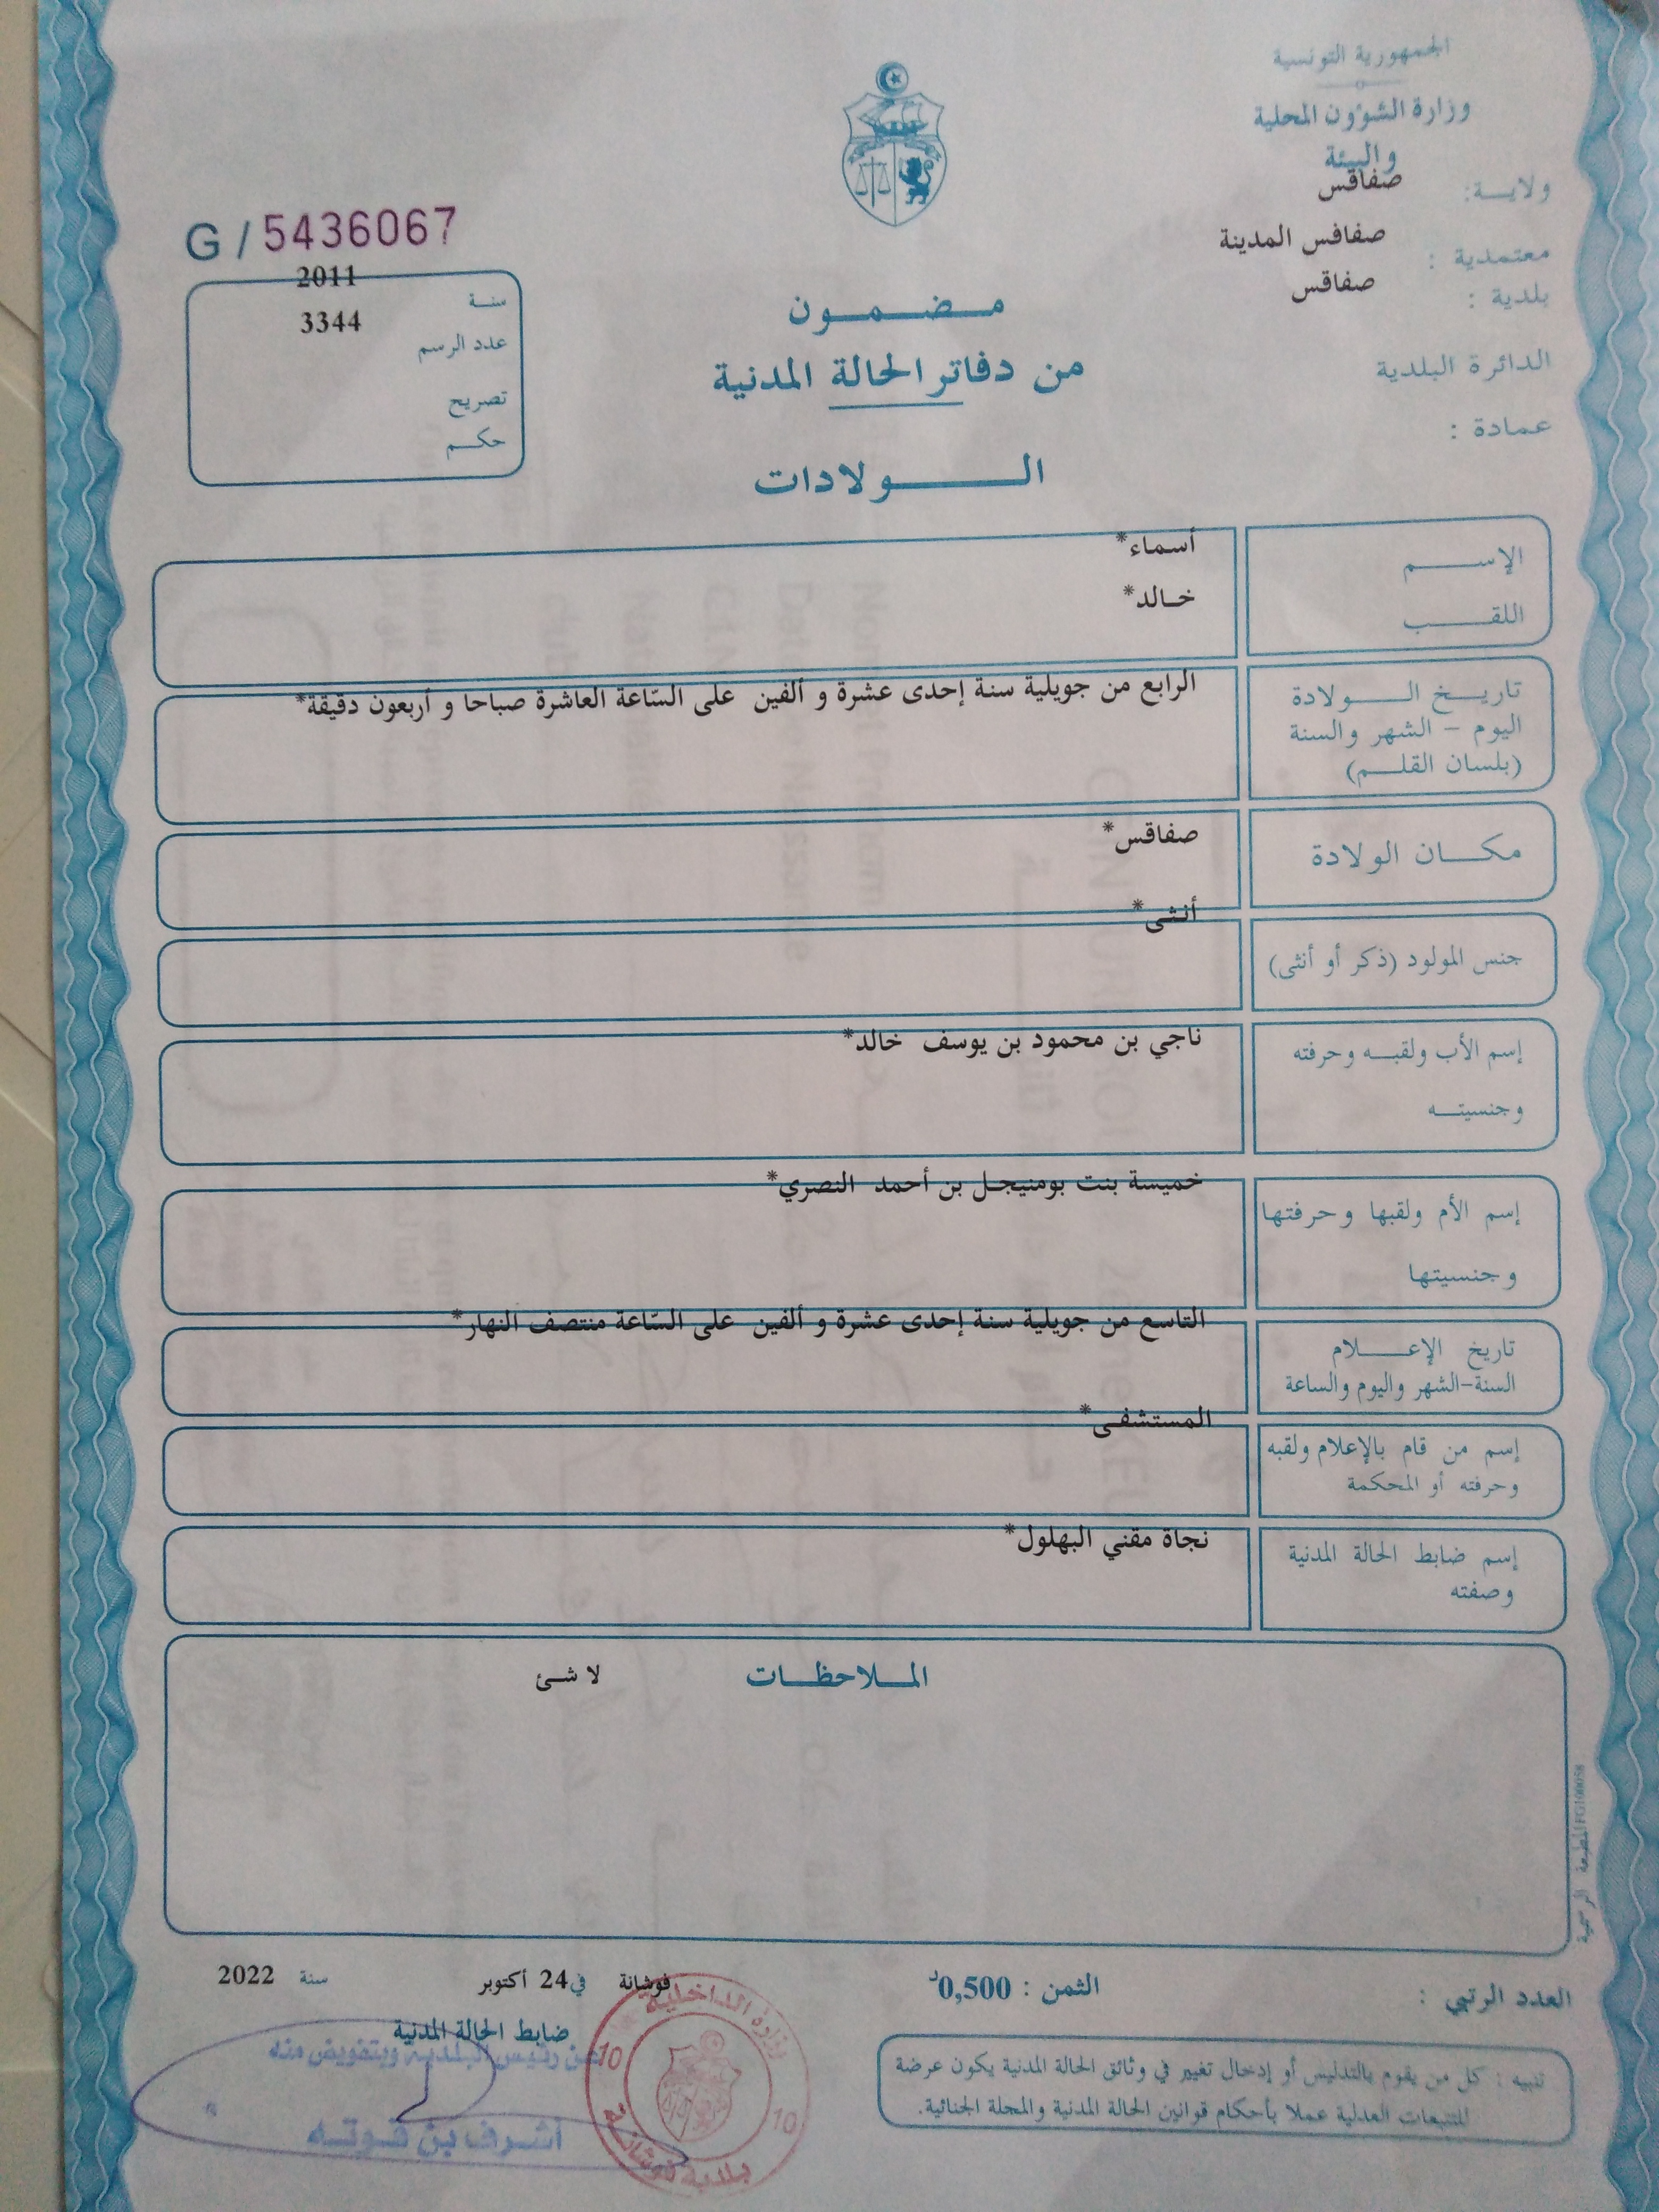 الجمهورية التونسية
وزارة الشؤون المحلية
والبيئة
ولايـــة: صفاقس
معتمدية : صفاقس المدينة
بلدية : صفاقس
الدائرة البلدية
عمادة :
G / 5436067
سنة 2011
عدد الرسم 3344
تصريح
حكم
مضمون
من دفاتر الحالة المدنية
الولادات
الإسم أسماء*
اللقب خالد*
تاريخ الولادة الرابع من جويلية سنة إحدى عشرة و ألفين على السّاعة العاشرة صباحا و أربعون دقيقة*
اليوم - الشهر والسنة
(بلسان القلم)
مكان الولادة صفاقس*
جنس المولود (ذكر أو أنثى) أنثى*
إسم الأب ولقبه وحرفته ناجي بن محمود بن يوسف خالد*
وجنسيته
إسم الأم ولقبها وحرفتها خميسة بنت بومنيجل بن أحمد النصري*
وجنسيتها
تاريخ الإعلام التاسع من جويلية سنة إحدى عشرة و ألفين على السّاعة منتصف النهار*
السنة-الشهر واليوم والساعة
إسم من قام بالإعلام ولقبه المستشفى*
وحرفته أو المحكمة
إسم ضابط الحالة المدنية نجاة مقني البهلول*
وصفته
الملاحظات لا شئ
المطبعة الرسمية
العدد الرتبي :
الثمن : 0,500د
فوشانة في 24 أكتوبر سنة 2022
ضابط الحالة المدنية
عن رئيس البلدية وبتفويض منه
أشرف بن قوته
وزارة الداخلية
10 10
بلدية فوشانة
تنبيه : كل من يقوم بالتدليس أو إدخال تغيير في وثائق الحالة المدنية يكون عرضة
للتتبعات العدلية عملا بأحكام قوانين الحالة المدنية والمجلة الجنائية.